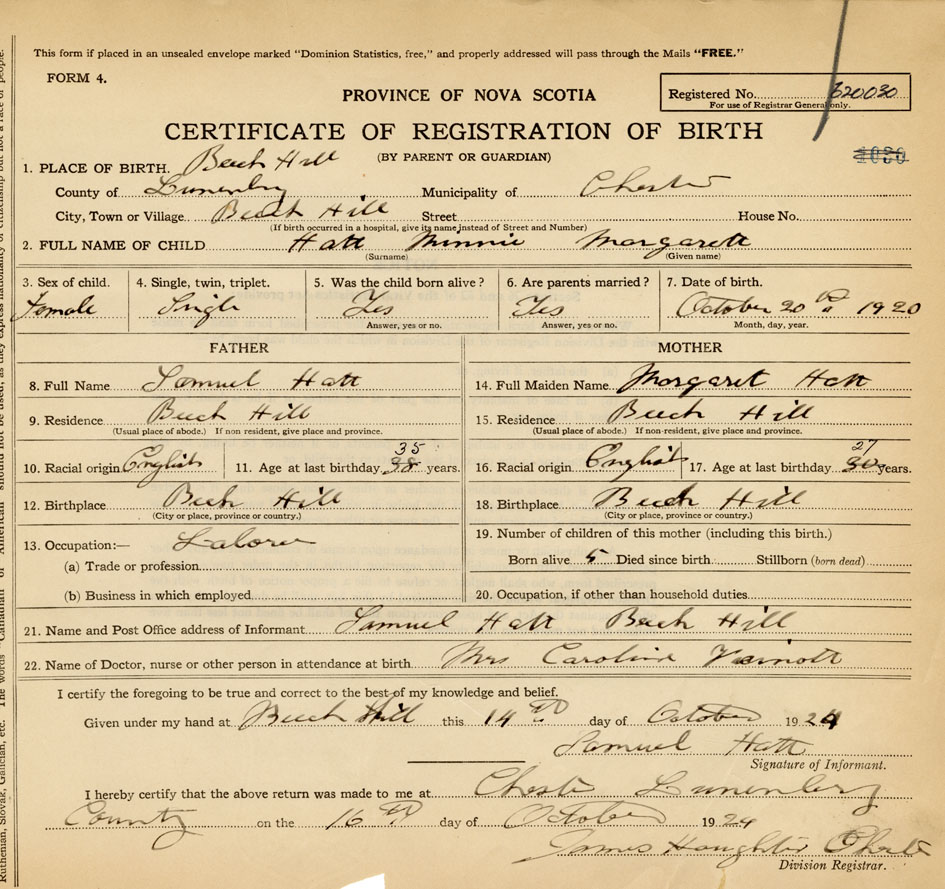 This form if placed in an unsealed envelope marked "Dominion Statistics, free," and properly addressed will pass through the Mails "FREE."
FORM 4.
Registered No. 620030
For use of Registrar General only.
PROVINCE OF NOVA SCOTIA
CERTIFICATE OF REGISTRATION OF BIRTH
(BY PARENT OR GUARDIAN)
1. PLACE OF BIRTH. Beech Hill
County of Lunenbrg Municipality of Chester
City, Town or Village Beech Hill Street House No.
(If birth occurred in a hospital, give its name instead of Street and Number)
2. FULL NAME OF CHILD Hatt Minnie Margarett
(Surname) (Given name)
3. Sex of child. 4. Single, twin, triplet. 5. Was the child born alive? 6. Are parents married? 7. Date of birth.
Female Single Yes Yes October 20th 1920
Answer, yes or no. Answer, yes or no. Month, day, year.
FATHER MOTHER
8. Full Name Samuel Hatt 14. Full Maiden Name Margaret Hatt
9. Residence Beech Hill 15. Residence Beech Hill
(Usual place of abode.) If non resident, give place and province. (Usual place of abode.) If non-resident, give place and province.
35 27
10. Racial origin English 11. Age at last birthday years. 16. Racial origin English 17. Age at last birthday 30 years.
12. Birthplace Beech Hill 18. Birthplace Beech Hill
(City or place, province or country.) (City or place, province or country.)
13. Occupation:— Laborer 19. Number of children of this mother (including this birth.)
(a) Trade or profession Born alive 5 Died since birth Stillborn (born dead)
(b) Business in which employed 20. Occupation, if other than household duties
21. Name and Post Office address of Informant Samuel Hatt Beech Hill
22. Name of Doctor, nurse or other person in attendance at birth Mrs Caroline Veinott
I certify the foregoing to be true and correct to the best of my knowledge and belief.
Given under my hand at Beech Hill this 14th day of October 1924
Samuel Hatt
Signature of Informant.
I hereby certify that the above return was made to me at Chester Lunenberg
County on the 16th day of October 1924
James Houghton
Division Registrar.